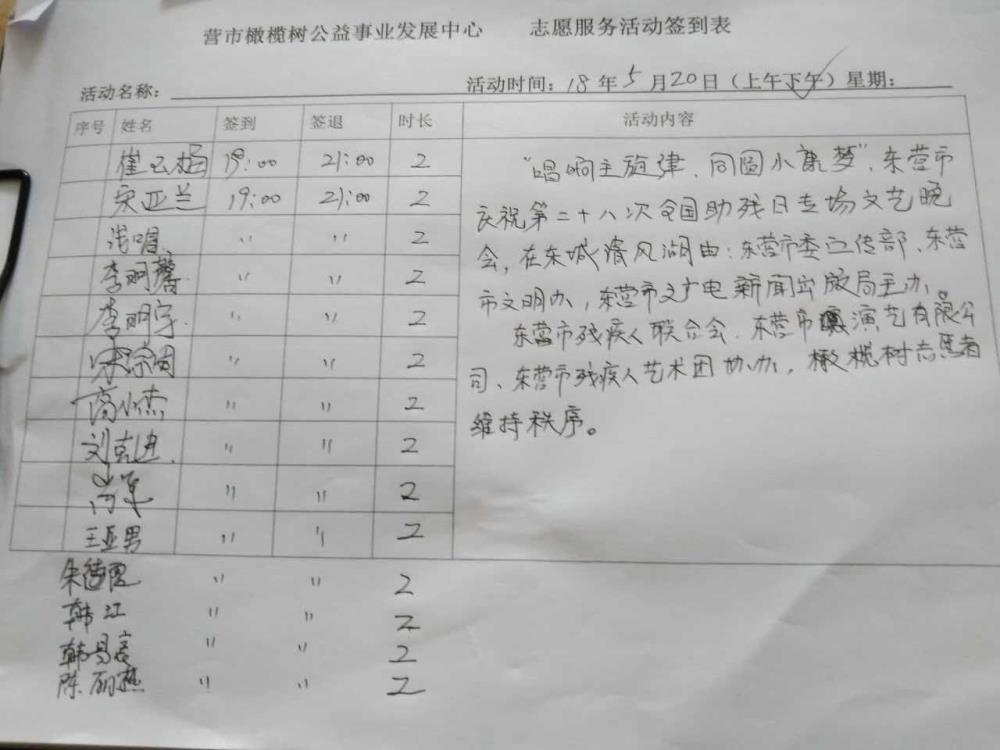 营市橄榄树公益事业发展中心 志愿服务活动签到表
活动名称: 活动时间: 18 年 5 月 20 日 (上午下午) 星期:
序号 姓名 签到 签退 时长 活动内容
崔 梅 19:00 21:00 2
宋亚兰 19:00 21:00 2
浅唱 〃 〃 2
李明馨 〃 〃 2
李明宇 〃 〃 2
〃 〃 2
高小杰 〃 〃 2
刘克进 〃 〃 2
〃 〃 2
王亚男 〃 〃 2
朱德 〃 〃 2
韩江 〃 〃 2
韩易 〃 〃 2
陈丽燕 〃 〃 2
“唱响主旋律、同圆小康梦”,东营市
庆祝第二十八次全国助残日专场文艺晚
会,在东城清风湖由:东营市委宣传部、东营
市文明办,东营市文广电新闻出版局主办。
东营市残疾人联合会.东营市 演艺有限公
司、东营市残疾人艺术团协办,橄榄树志愿者
维持秩序。